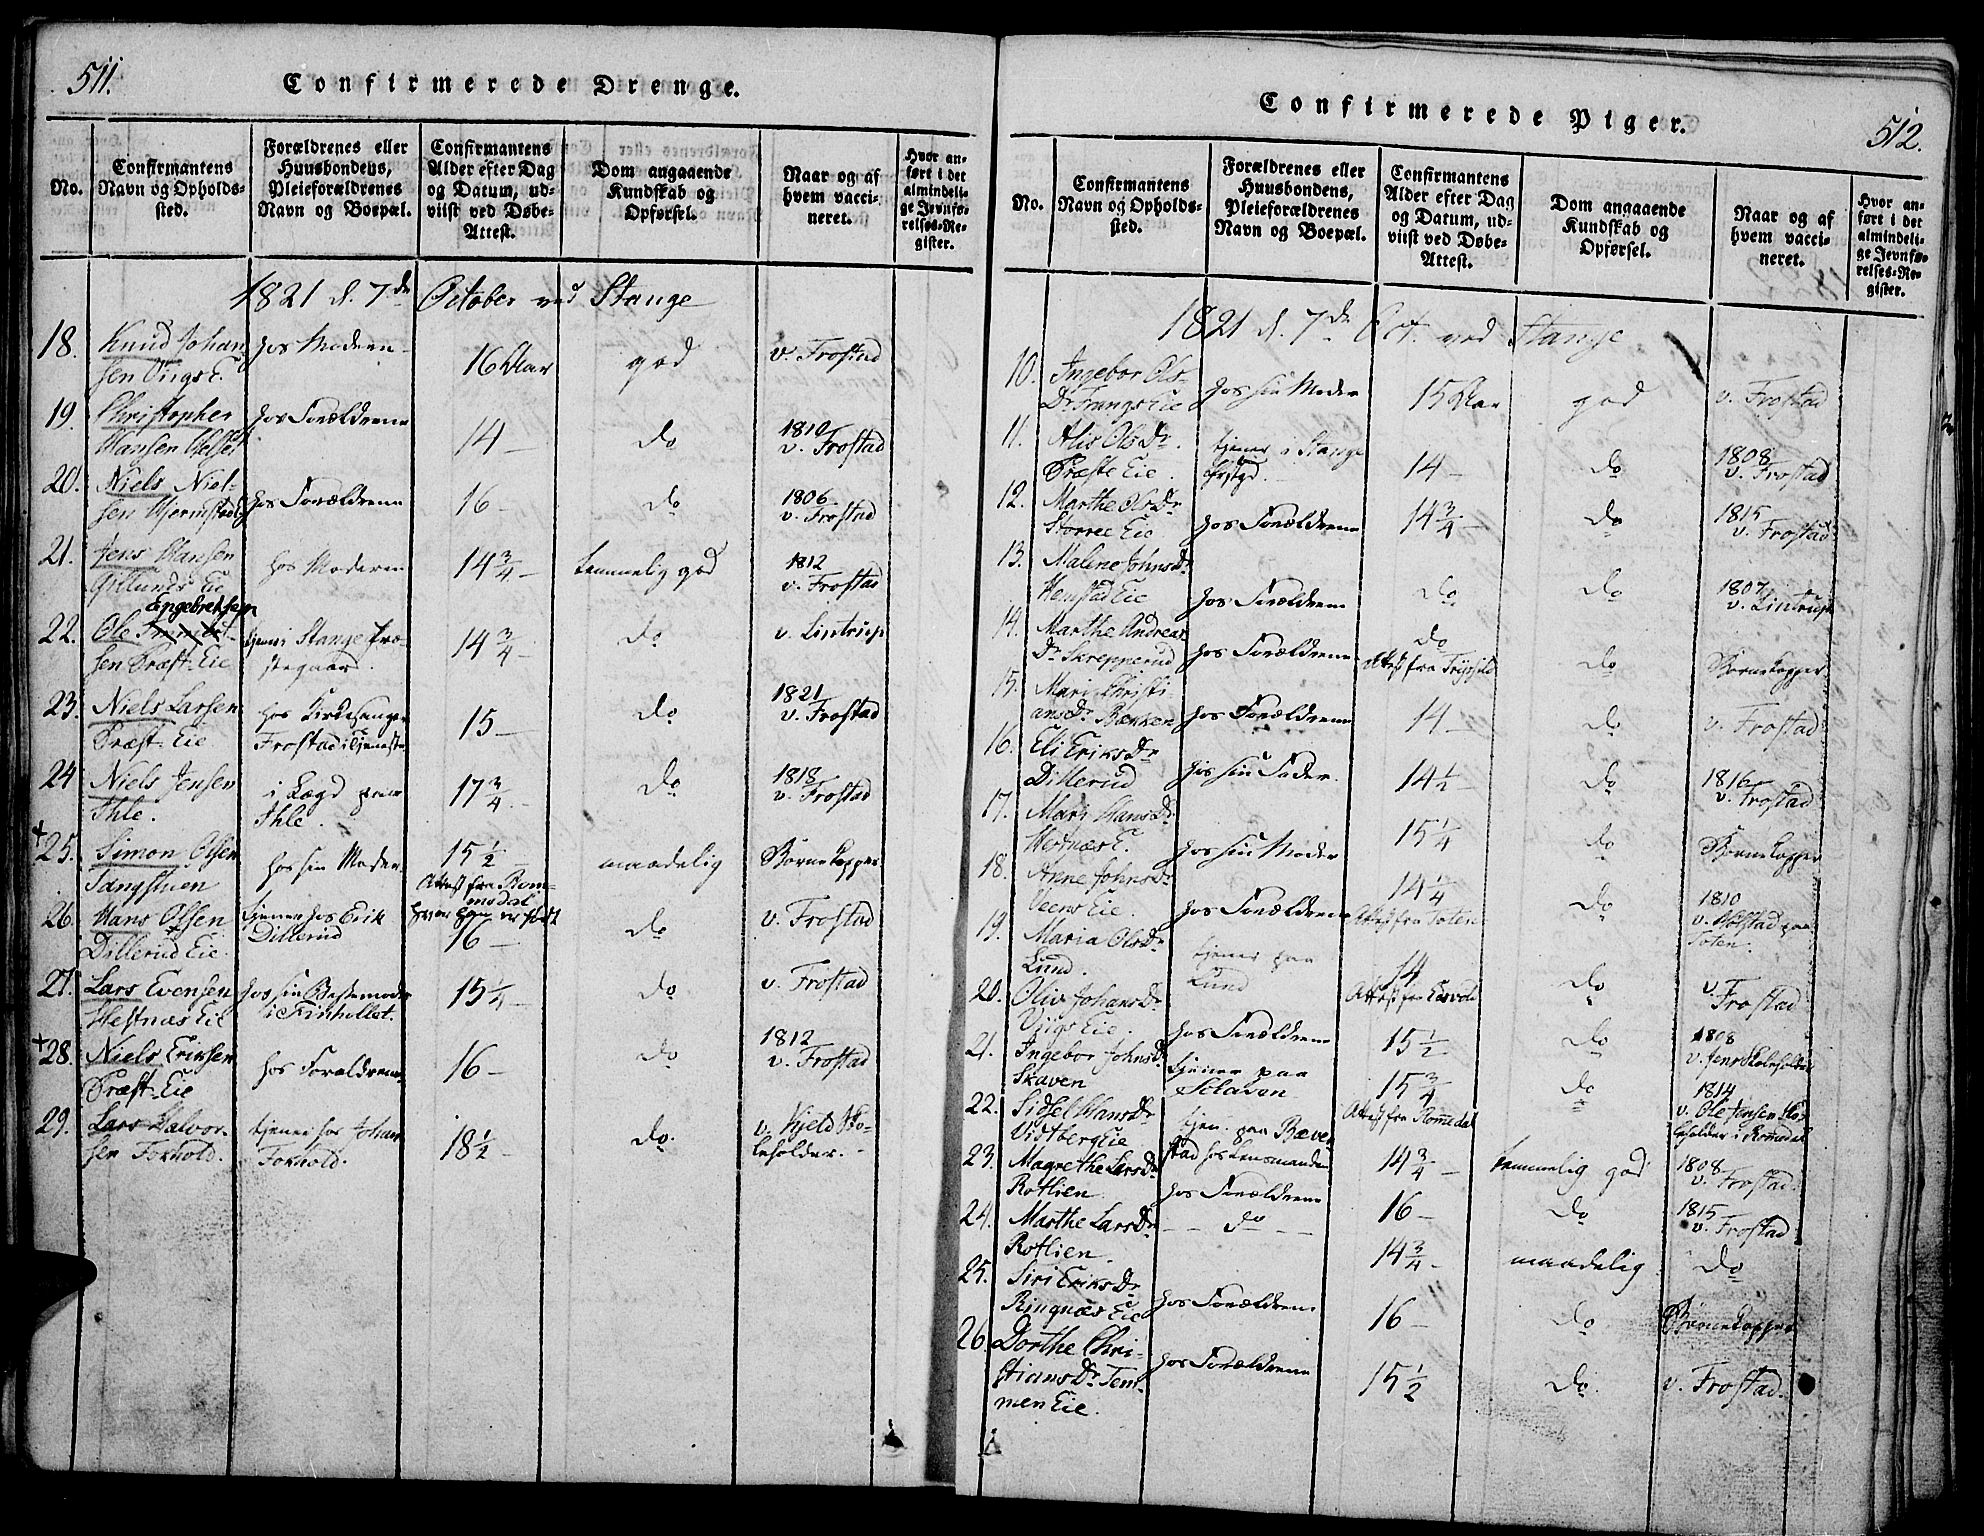 511.
Confirmerede Drenge.
No.
Confirmantens
Navn og Opholds-
sted.
Forældrenes eller
Huusbondens,
Pleieforældrenes
Navn og Boepæl.
Confirmantens
Alder efter Dag
og Datum, ud-
viist ved Døbe-
Attest.
Dom angaaende
Kundskab og
Opførsel.
Naar og af
hvem vacci-
neret.
Hvor an-
ført i det
almindeli-
ge Jevnfø-
relses-Re-
gister.
1821 d. 7de October ved Stange
18. Knud Johan
sen E.
hos Moderen
16 Aar
god
v. Frostad
19. Christopher
Hansen
hos Forældrene
14 –
do
1810
v. Frostad
20. Niels Niel-
sen Hjermstad
hos Forældrene
16 –
do
1806
v. Frostad
21. Jens Hansen
Eie
hos Moderen
14 3/4 –
temmelig god
1812
v. Frostad
Engebretsen
22. Ole
sen Præst-Eie
tjener i Stange Præ-
stegaard.
14 3/4 –
do
v. Lintrup
23. Niels Larsen
Præst-Eie
hos Kirkesanger
Frostad i Tjeneste
15 –
do
1821
v. Frostad
24 Niels Jensen
Ihle.
i Lægd paa
Ihle.
17 3/4 –
do
1818
v. Frostad
+25. Simon Olsen
Tangstuen
hos sin Moder
15 1/2 –
Attest fra Rom-
medal
hvor han er født
maadelig
Børnekopper
26. Hans Olsen
Dillerud Eie.
tjener hos Erik
Dillerud
16 –
do
v. Frostad
27. Lars Evensen
Hestnæs Eie
hos sin Bestemoder
i Finholtet.
15 1/4 –
do
v. Frostad
+28. Niels Eriksen
Præst-Eie
hos Forældrene
16 –
do
1812
v. Frostad
29. Lars Halvor-
sen Forhold.
tjener hos Johan
Forhold.
18 1/2 –
do.
v. Kjeld Sko-
leholder. –
512.
Confirmerede Piger.
No.
Confirmantens
Navn og Opholds-
sted.
Forældrenes eller
Huusbondens,
Pleieforældrenes
Navn og Boepæl.
Confirmantens
Alder efter Dag
og Datum, ud-
viist ved Døbe-
Attest.
Dom angaaende
Kundskab og
Opførsel.
Naar og af
hvem vacci-
neret.
Hvor an-
ført i det
almindeli-
ge Jevnfø-
relses-Re-
gister.
1821 d. 7de Oct. ved Stange
10. Ingebor Ols-
Dr Frangs Eie
hos sin Moder
15 Aar
god
v. Frostad
11. Alis Ols Dr.
Præste Eie.
tjener i Stange
14 –
do
1808
v. Frostad
12. Marthe Ols Dr
Eie
hos Forældrene
14 3/4 –
do
1815
v. Frostad
13. Malene Johns Dr
Hemstad Eie
hos Forældrene
do
do
1807
v. Lintrup
14. Marthe Andreas
Dr Skrepperud
hos Forældrene
do
Attest fra Tryssild
do
Børnekopper
15. Mari Christi
ans Dr Bækken
hos Forældrene
14 –
do
v. Frostad
16. Eli Eriks Dr
Dillerud
hos sin Fader.
14 1/2 –
do
1816
v. Frostad
17. Mari Hans Dr
Hestnæs E.
hos sin Moder
15 1/4
do
Børnekopper
18. Anne Johns Dr
Veens Eie.
hos Forældrene
14 1/4
Attest fra Toten
do
1810
v. Holstad paa
Toten.
19. Maria Ols Dr
Lund.
tjener paa
Lund
14
Attest fra Eidsvold
do
v.
Frostad
20. Oliv Johans Dr
Eie.
hos Forældrene
15 1/2
do
1808
v. Jens Skoleholder
21. Ingebor Johns Dr
Skaven
tjener paa
Skaven
15 3/4
Attest fra Romedal
do
1814
v. Ole Jensen Sko-
leholder i Romedal
22. Sidsel Hans Dr
Vidtberg Eie
tjen. paa Bæver
stad hos Lensmanden
14 3/4 –
temmelig god
1808
v. Frostad.
23. Magrethe Lars Dr
Rotlien
hos Forældrene
16 –
do
1815
v. Frostad
24. Marthe Lars Dr
Rotlien
– do –
14 3/4 –
maadelig
do
25. Siri Eriks Dr
Ringnæs Eie
hos Forældrene
16 –
do
Børnekopper
26. Dorthe Chri-
stians Dr Tem-
men Eie.
hos Forældrene
15 1/2
do.
v. Frostad.